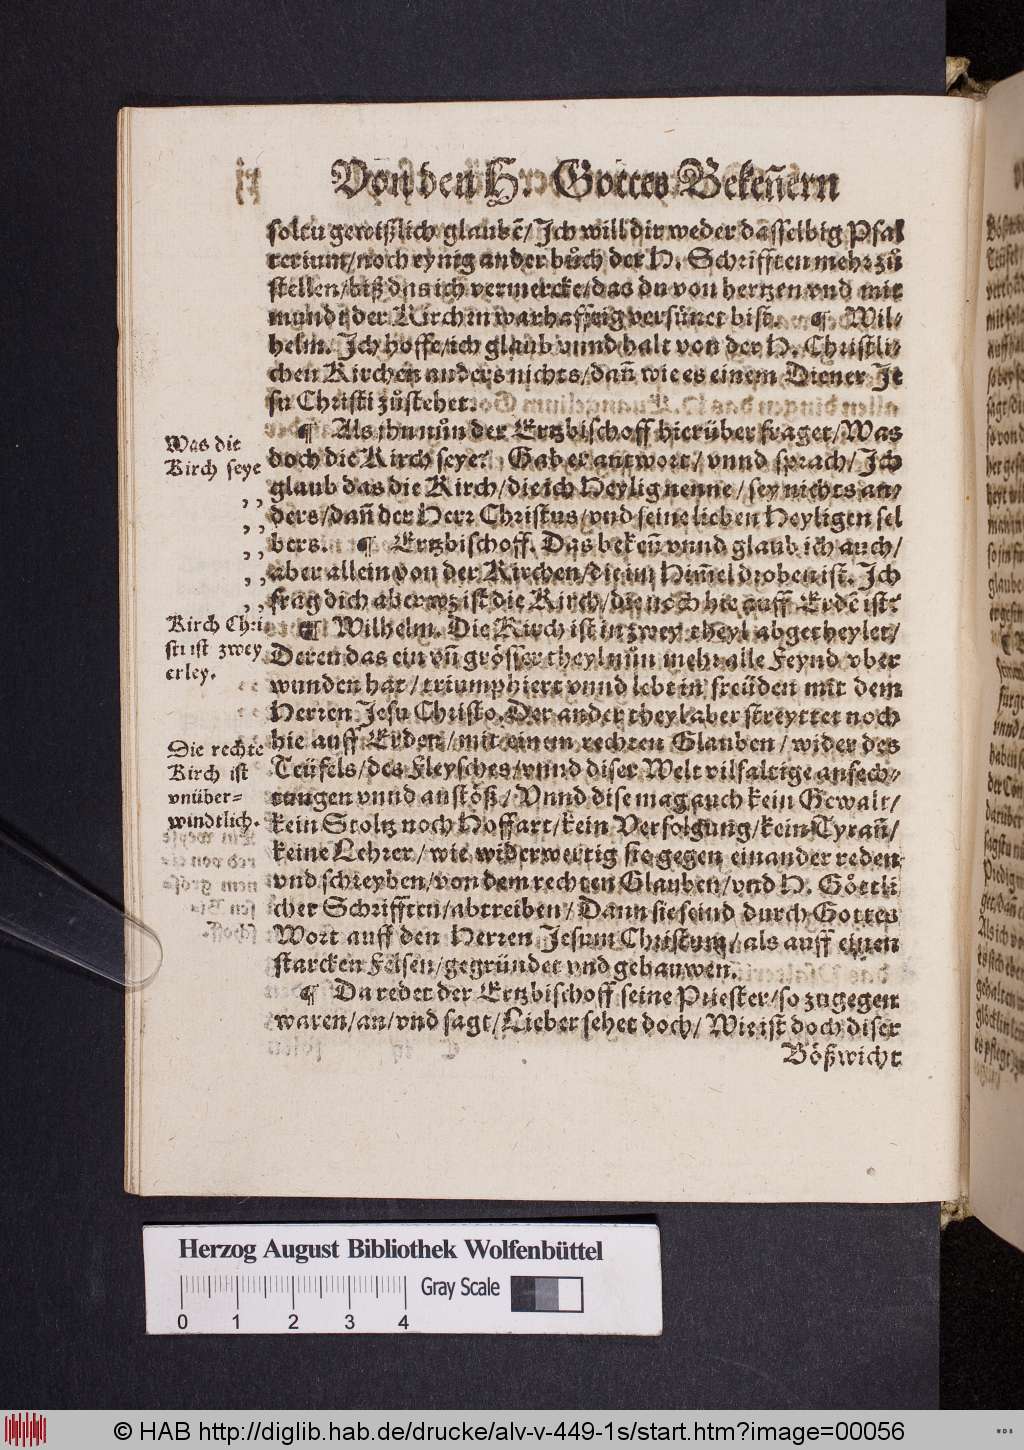 Von den H. Gottes Bekeñern
soltu gewißlich glaubẽ/ Ich will dir weder dasselbig Psal
terium/ noch eynig ander bůch der H. Schrifften mehr zů
stellen/ biß das ich vermercke/ das du von hertzen vnd mit
mundt der Kirch in warhafftig versünet bist. ¶ Wil-
helm. Ich hoffe/ ich glaub vnnd halt von der H. Christli-
chen Kirchen anders nichts/ dañ wie es einem Diener Je
su Christi zůstehet.
¶ Als ihn nůn der Ertzbischoff hierüber fraget/ Was
doch die Kirch seye? Gab er antwort/ vnnd sprach/ Ich
glaub das die Kirch/ die ich Heylig nenne/ sey nichts an-
ders/ dañ der Herr Christus/ vnd seine lieben Heyligen sel
bers. ¶ Ertzbischoff. Das bekeñ vnnd glaub ich auch/
aber allein von der Kirchen/ die im Him̃el droben ist. Ich
frag dich aber wz ist die Kirch/ die noch hie auff Erdẽ ist?
¶ Wilhelm. Die Kirch ist in zwey theyl abgetheylet/
Deren das ein vñ grösser theyl nůn mehr alle Feynd vber
wunden hat/ triumphiert vnnd lebt in freüden mit dem
Herren Jesu Christo. Der ander theyl aber streyttet noch
hie auff Erden/ mit einem rechten Glauben/ wider des
Teüfels/ des Fleysches/ vnnd diser Welt vilfaltige anfech-
tungen vnnd anstöß/ Vnnd dise mag auch kein Gewalt/
kein Stoltz noch Hoffart/ kein Verfolgung/ kein Tyrañ/
keine Lehrer/ wie widerwertig sie gegen einander reden
vnd schreyben/ von dem rechten Glauben/ vnd H. Göttli
cher Schrifften/ abtreiben/ Dann sie seind durch Gottes
Wort auff den Herren Jesum Christum/ als auff einen
starcken Felsen/ gegründet vnd gebauwen.
¶ Da redet der Ertzbischoff seine Priester/ so zugegen
waren/ an/ vnd sagt/ Lieber sehet doch/ Wie ist doch diser
Bößwicht
Was die
Kirch seye
Kirch Chri
sti ist zwey
erley.
Die rechte
Kirch ist
vnüber-
windtlich.
Herzog August Bibliothek Wolfenbüttel
Gray Scale
0 1 2 3 4
© HAB http://diglib.hab.de/drucke/alv-v-449-1s/start.htm?image=00056